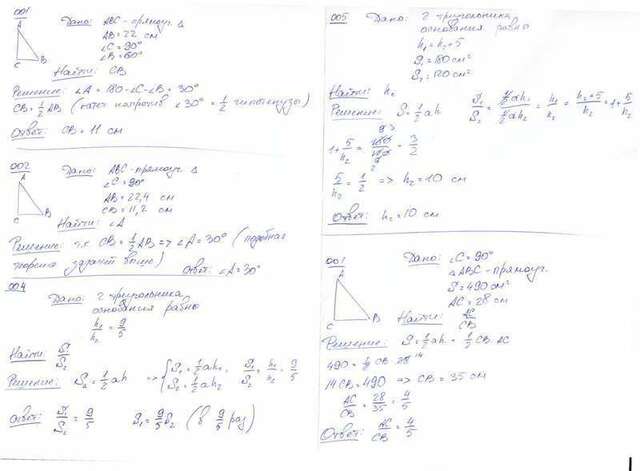 001
A
C
B
Дано: ABC - прямоуг. Δ
AB = 22 см
∠C = 90°
∠B = 60°
Найти: CB
Решение: ∠A = 180 - ∠C - ∠B = 30°
CB = 1/2 AB (катет напротив ∠30° = 1/2 гипотенузы)
Ответ: CB = 11 см
002
A
C
B
Дано: ABC - прямоуг. Δ
∠C = 90°
AB = 22,4 см
CB = 11,2 см
Найти: ∠A
Решение: т.к. CB = 1/2 AB => ∠A = 30° (подобная
теорема задачи выше)
Ответ: ∠A = 30°
004
Дано: 2 треугольника,
основания равны
h₁/h₂ = 9/5
Найти S₁/S₂
Решение: S₂ = 1/2 ah => { S₁ = 1/2 ah₁ S₂ = 1/2 ah₂ S₁/S₂ = h₁/h₂ = 9/5
Ответ: S₁/S₂ = 9/5 S₁ = 9/5 S₂ (в 9/5 раз)
005
Дано: 2 треугольника,
основания равны
h₁ = h₂ + 5
S₁ = 180 см²
S₂ = 120 см²
Найти: h₂
Решение: S = 1/2 ah S₁/S₂ = 1/2 ah₁ / 1/2 ah₂ = h₁/h₂ = h₂+5/h₂ = 1 + 5/h₂
1 + 5/h₂ = 180/120 = 3/2
5/h₂ = 1/2 => h₂ = 10 см
Ответ: h₂ = 10 см
001
A
C
B
Дано: ∠C = 90°
△ABC - прямоуг.
S = 490 см²
AC = 28 см
Найти: AC/CB
Решение: S = 1/2 ah = 1/2 CB AC
490 = 1/2 CB 28 14
14 CB = 490 => CB = 35 см
AC/CB = 28/35 = 4/5
Ответ: AC/CB = 4/5